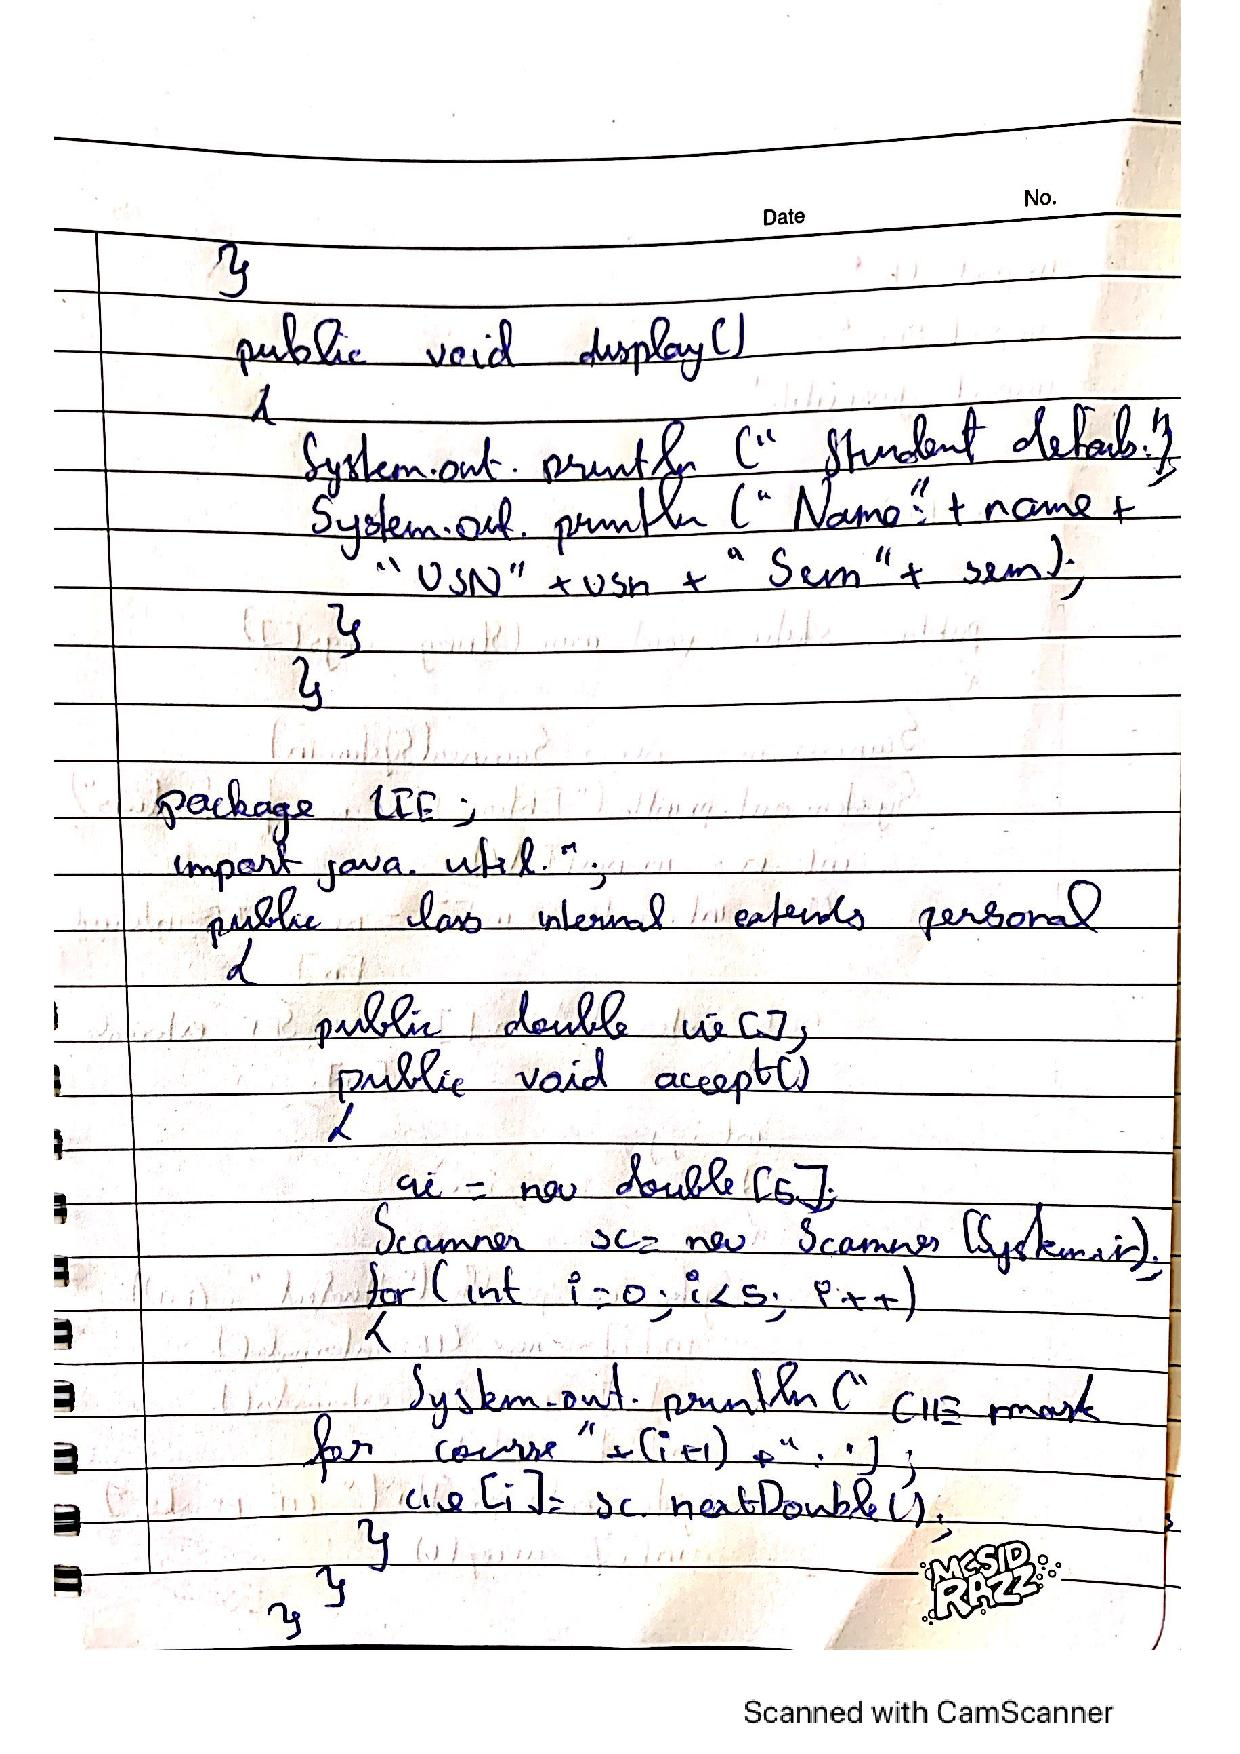 No.
Date
}
public void display()
{
System.out.println (" Student details:");
System.out.println (" Name:" + name +
" USN" + usn + " Sem " + sem);
}
}
package CIE;
import java.util.*;
public class internal extends personal
{
public double cie[];
public void accept()
{
cie = new double[5];
Scanner sc= new Scanner (System.in);
for (int i=0; i<5; i++)
{
System.out.println (" CIE mark
for course " +(i+1) + " : ");
cie[i]= sc.nextDouble();
}
}
}
MCSID
RAZZ
Scanned with CamScanner